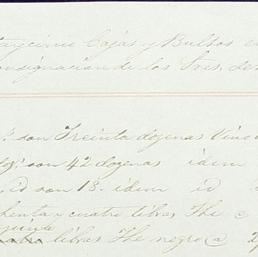 taycinco Cajas y Bultos en
onsignacion de los Sres. de
son Treinta dozenas Vino
son 42 dozenas idem
id son 18. idem id
chenta y cuatro libras The @
libras The negro @